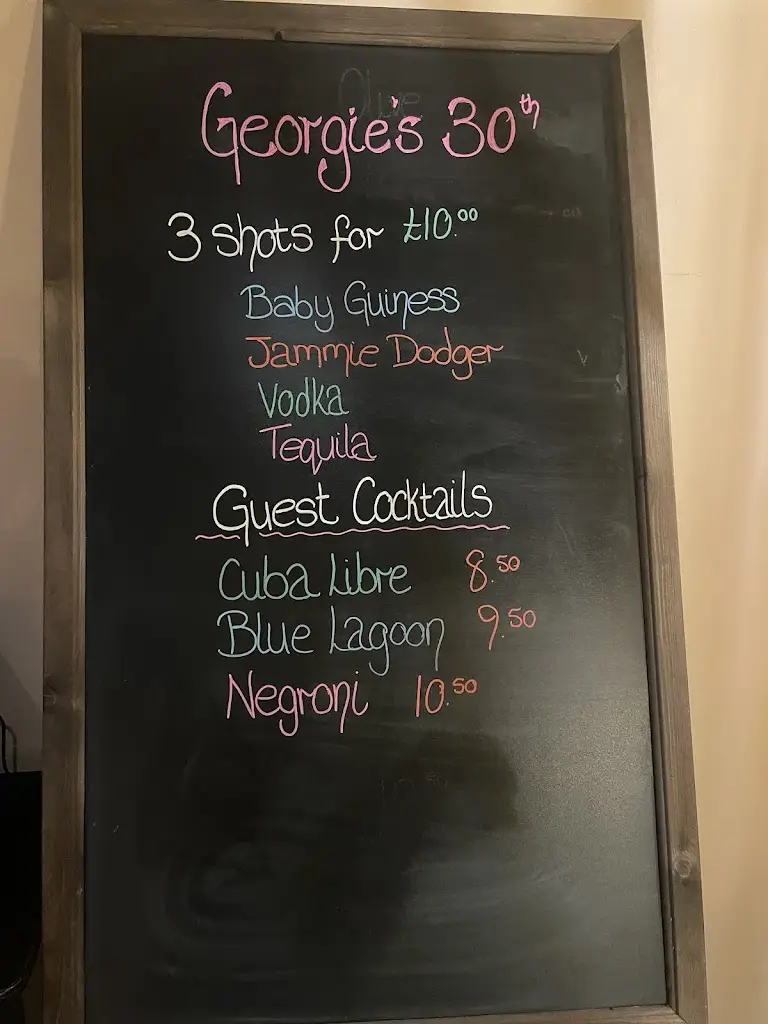 Georgie's 30th
3 shots for £10.00
Baby Guiness
Jammie Dodger
Vodka
Tequila
Guest Cocktails
Cuba Libre 8.50
Blue Lagoon 9.50
Negroni 10.50